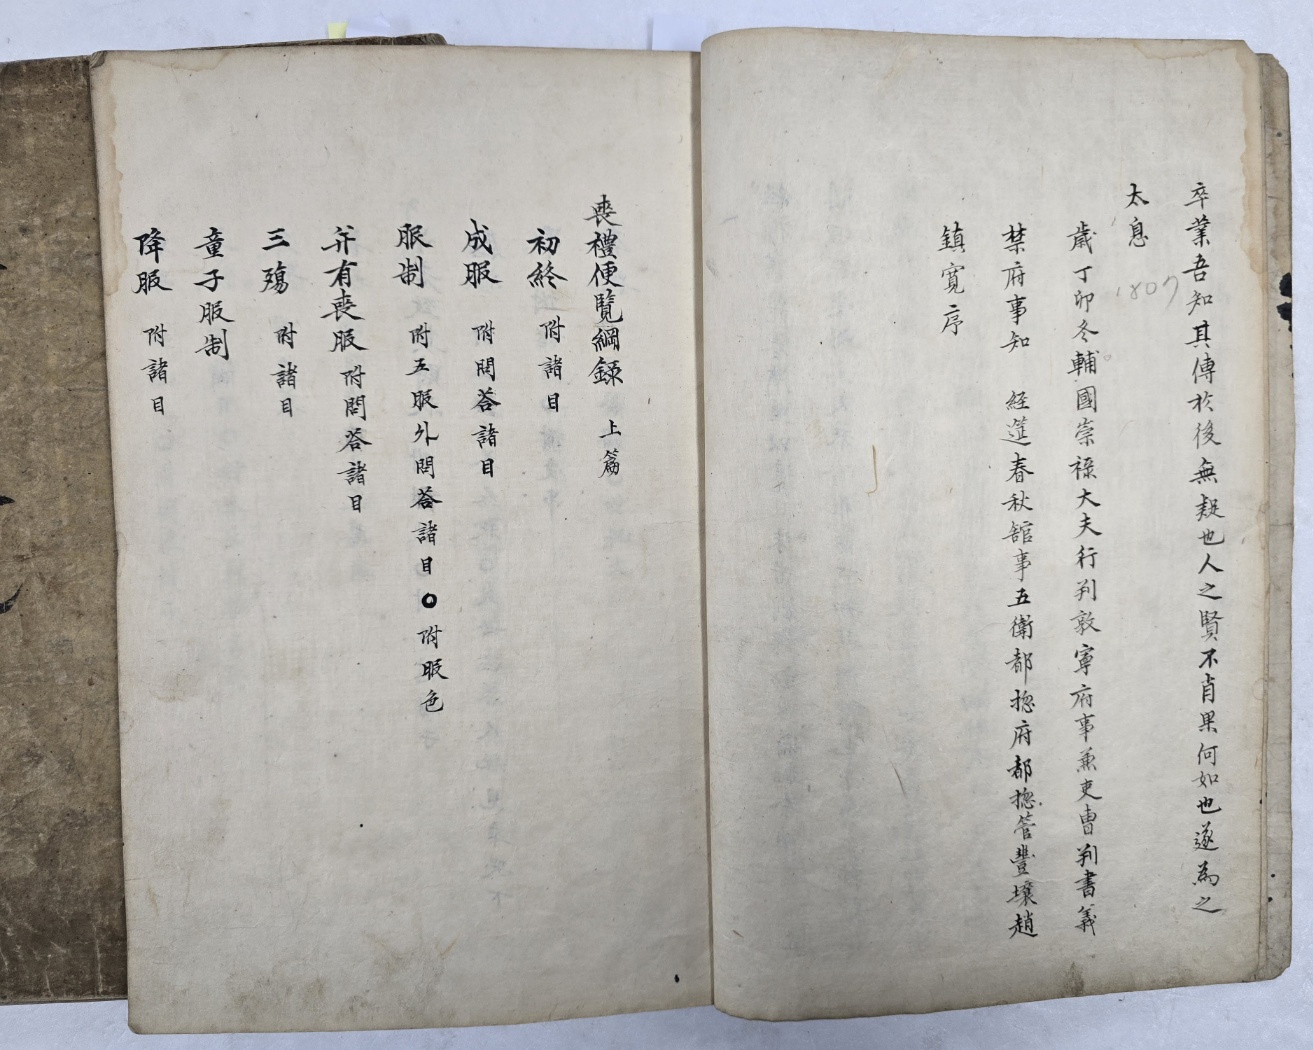 卒業吾知其傳於後無疑也人之賢不肖果何如也遂為之
太息
1807
歲丁卯冬輔國崇祿大夫行判敦寧府事兼吏曹判書義
禁府事知 經筵春秋館事五衛都摠府都摠管豐壤趙
鎮寬序
喪禮便覽綱錄 上篇
初終 附諸目
成服 附問答諸目
服制 附五服外問答諸目〇附服色
幷有喪服 附問答諸目
三殤 附諸目
童子服制
降服 附諸目